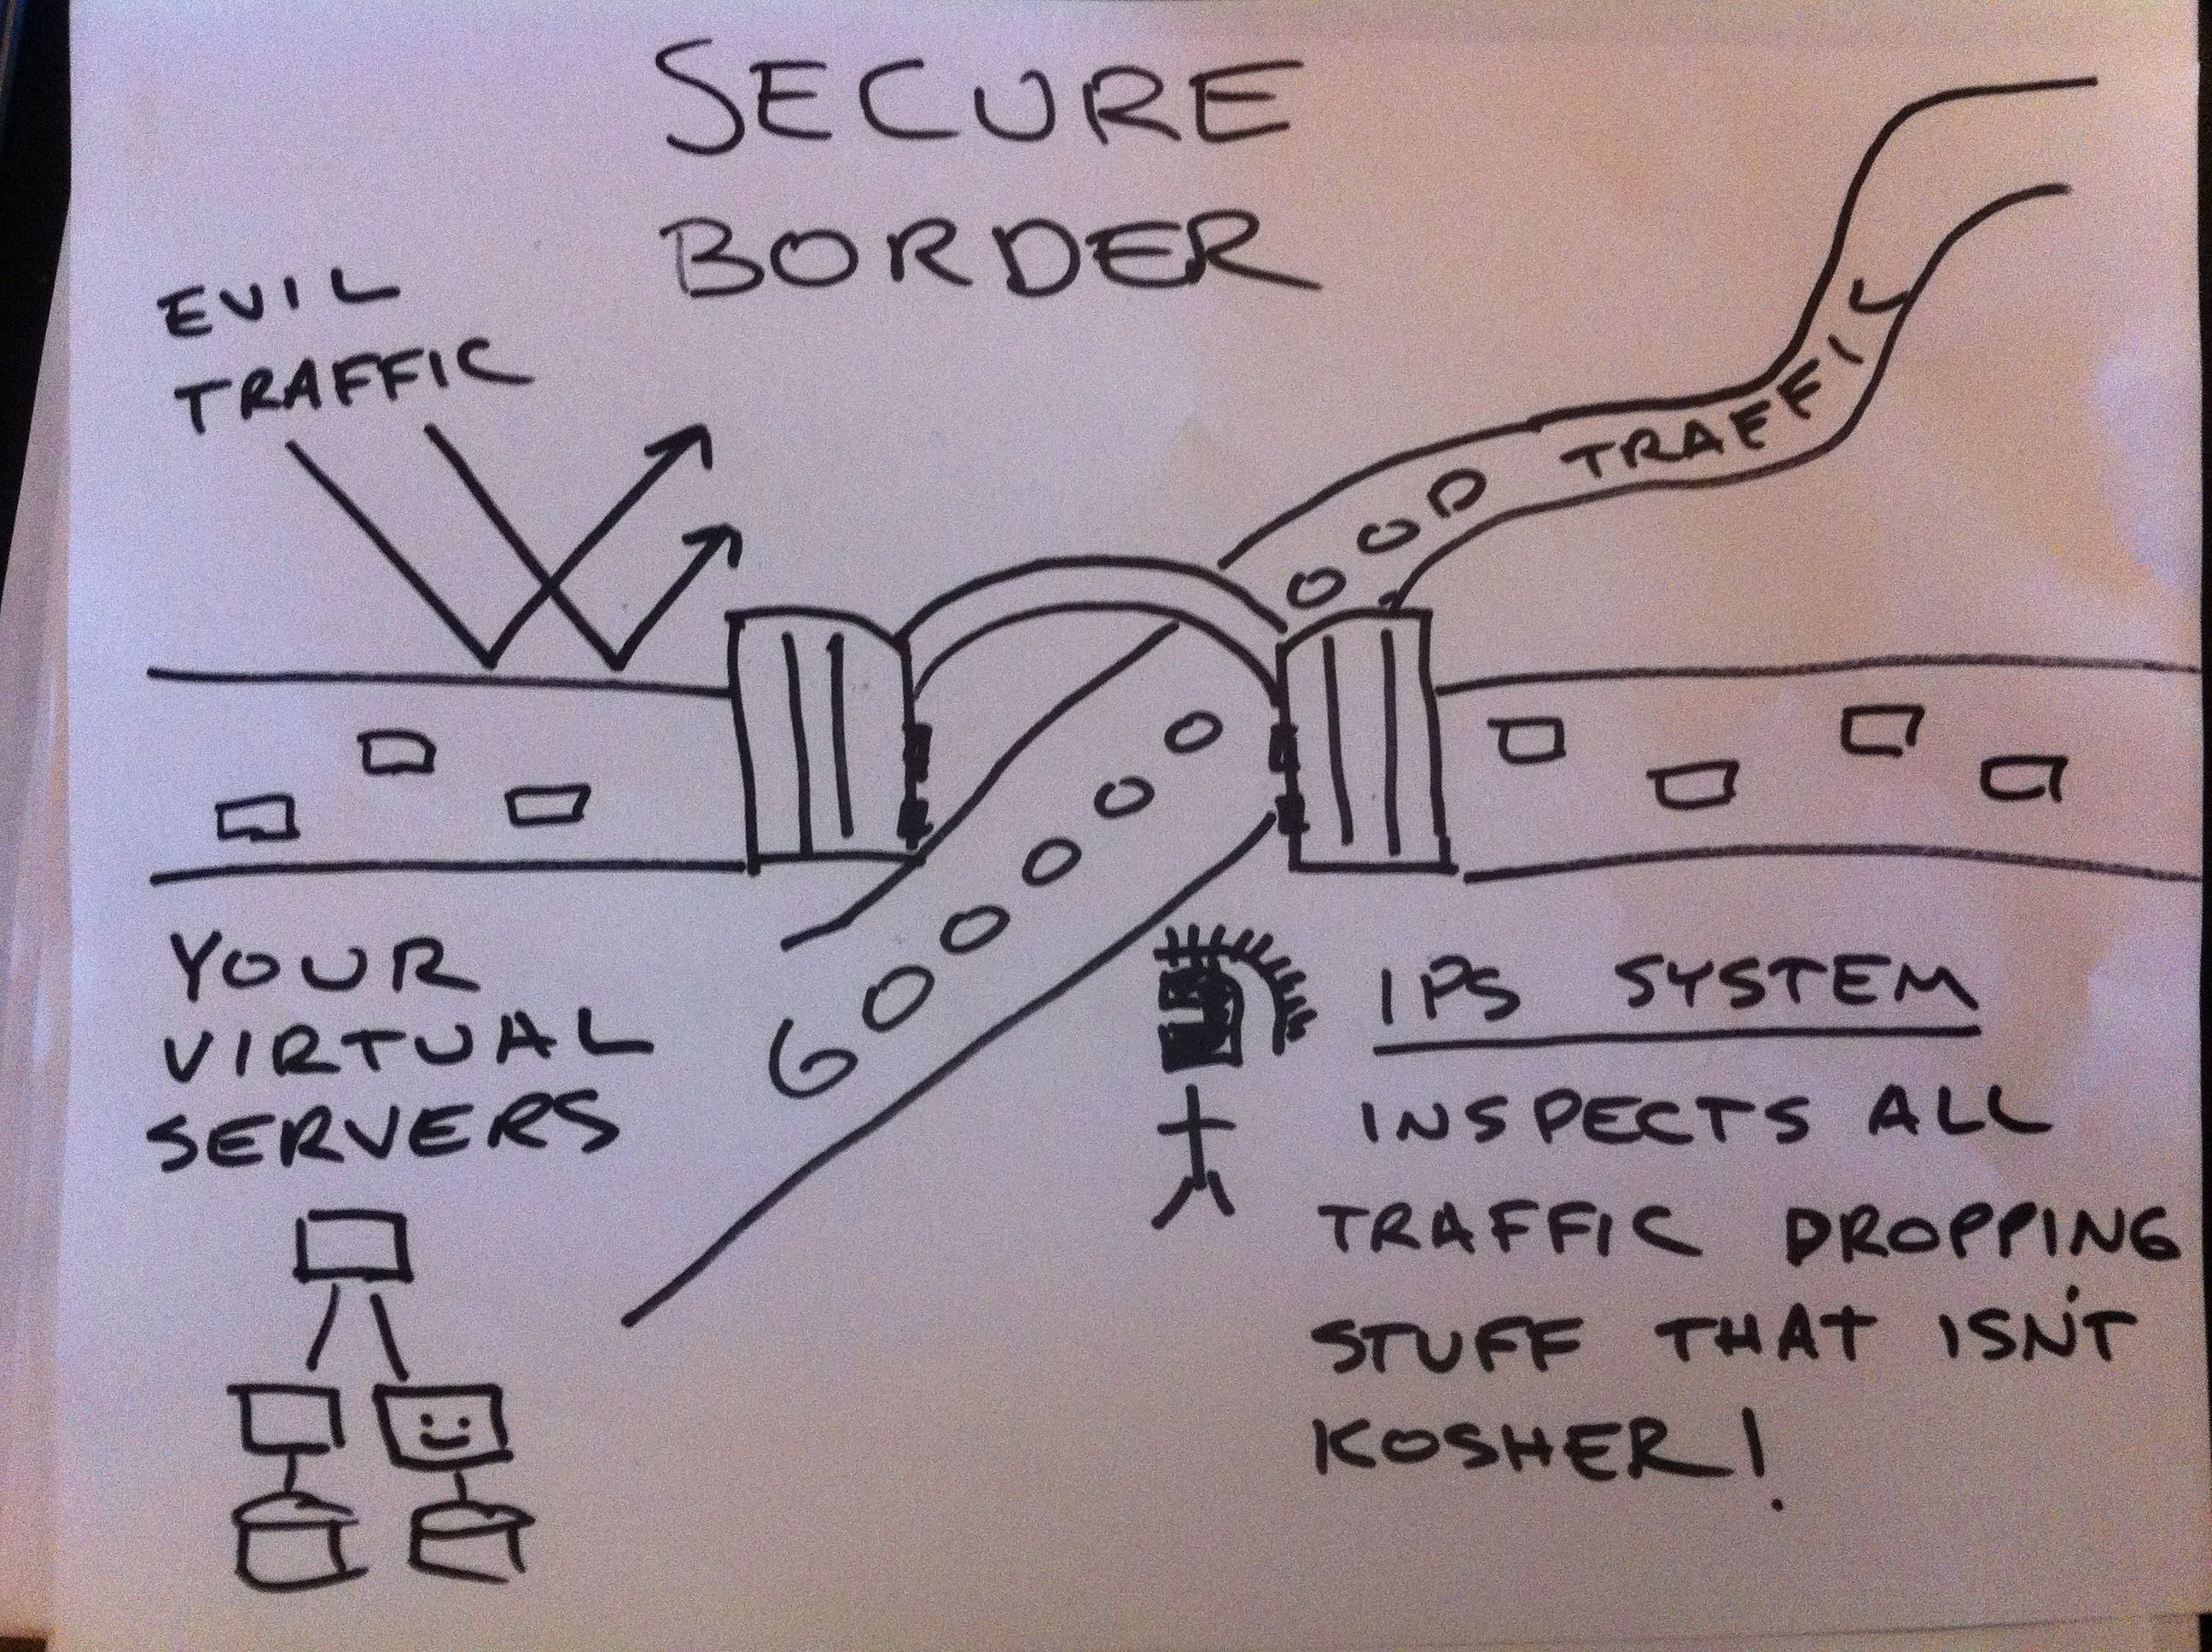 SECURE
BORDER
EVIL
TRAFFIC
GOOOOOOOD TRAFFIC
YOUR
VIRTUAL
SERVERS
IPS SYSTEM
INSPECTS ALL
TRAFFIC DROPPING
STUFF THAT ISN'T
KOSHER!